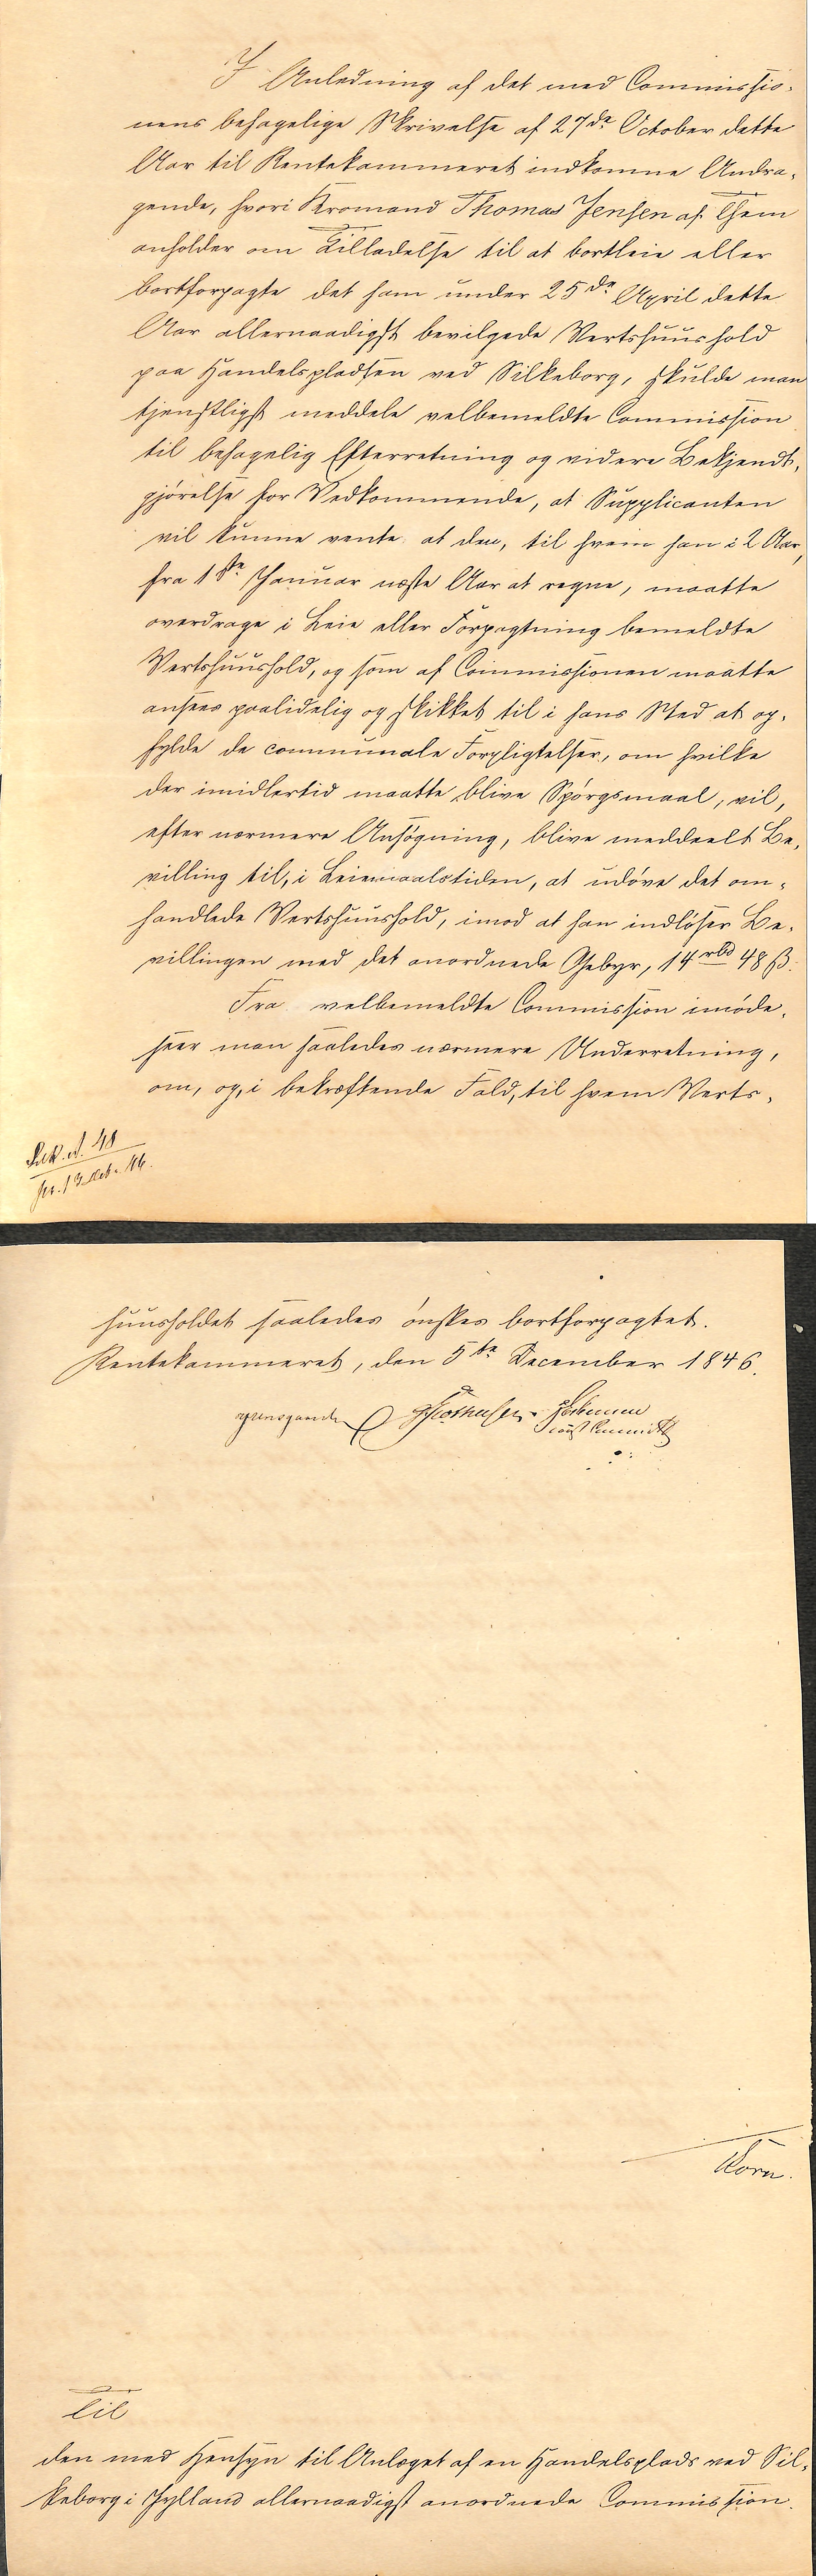 I Anledning af det med Commissio-
nens behagelige Skrivelse af 27de October dette
Aar til Rentekammeret indkomne Andra-
gende, hvori Kromand Thomas Jensen af Them
anholder om Tilladelse til at bortleie eller
bortforpagte det ham under 25de April dette
Aar allernaadigst bevilgede Vertshuushold
paa Handelspladsen ved Silkeborg, skulde man
tjenstligst meddele velbemeldte Commission
til behagelig Efterretning og videre Bekjendt-
gjørelse for Vedkommende, at Supplicanten
vil kunne vente at den, til hvem han i 2 Aar,
fra 1ste Januar næste Aar at regne, maatte
overdrage i Leie eller Forpagtning bemeldte
Vertshuushold, og som af Commissionen maatte
ansees paalidelig og skikket til i hans Sted at op-
fylde de communale Forpligtelser, om hvilke
der imidlertid maatte blive Spørgsmaal, vil,
efter nærmere Ansøgning, blive meddeelt Be-
villing til, i Leiemaalstiden, at udøve det om-
handlede Vertshuushold, imod at han indløser Be-
villingen med det anordnede Gebyr, 14 rbd 48 ß.
Fra velbemeldte Commission imøde-
seer man saaledes nærmere Underretning,
om, og, i bekræftende Fald, til hvem Verts-
huusholdet saaledes ønskes bortforpagtet.
Rentekammeret, den 5te December 1846.
Til
den med Hensyn til Anlæget af en Handelsplads ved Sil-
keborg i Jylland allernaadigst anordnede Commission.